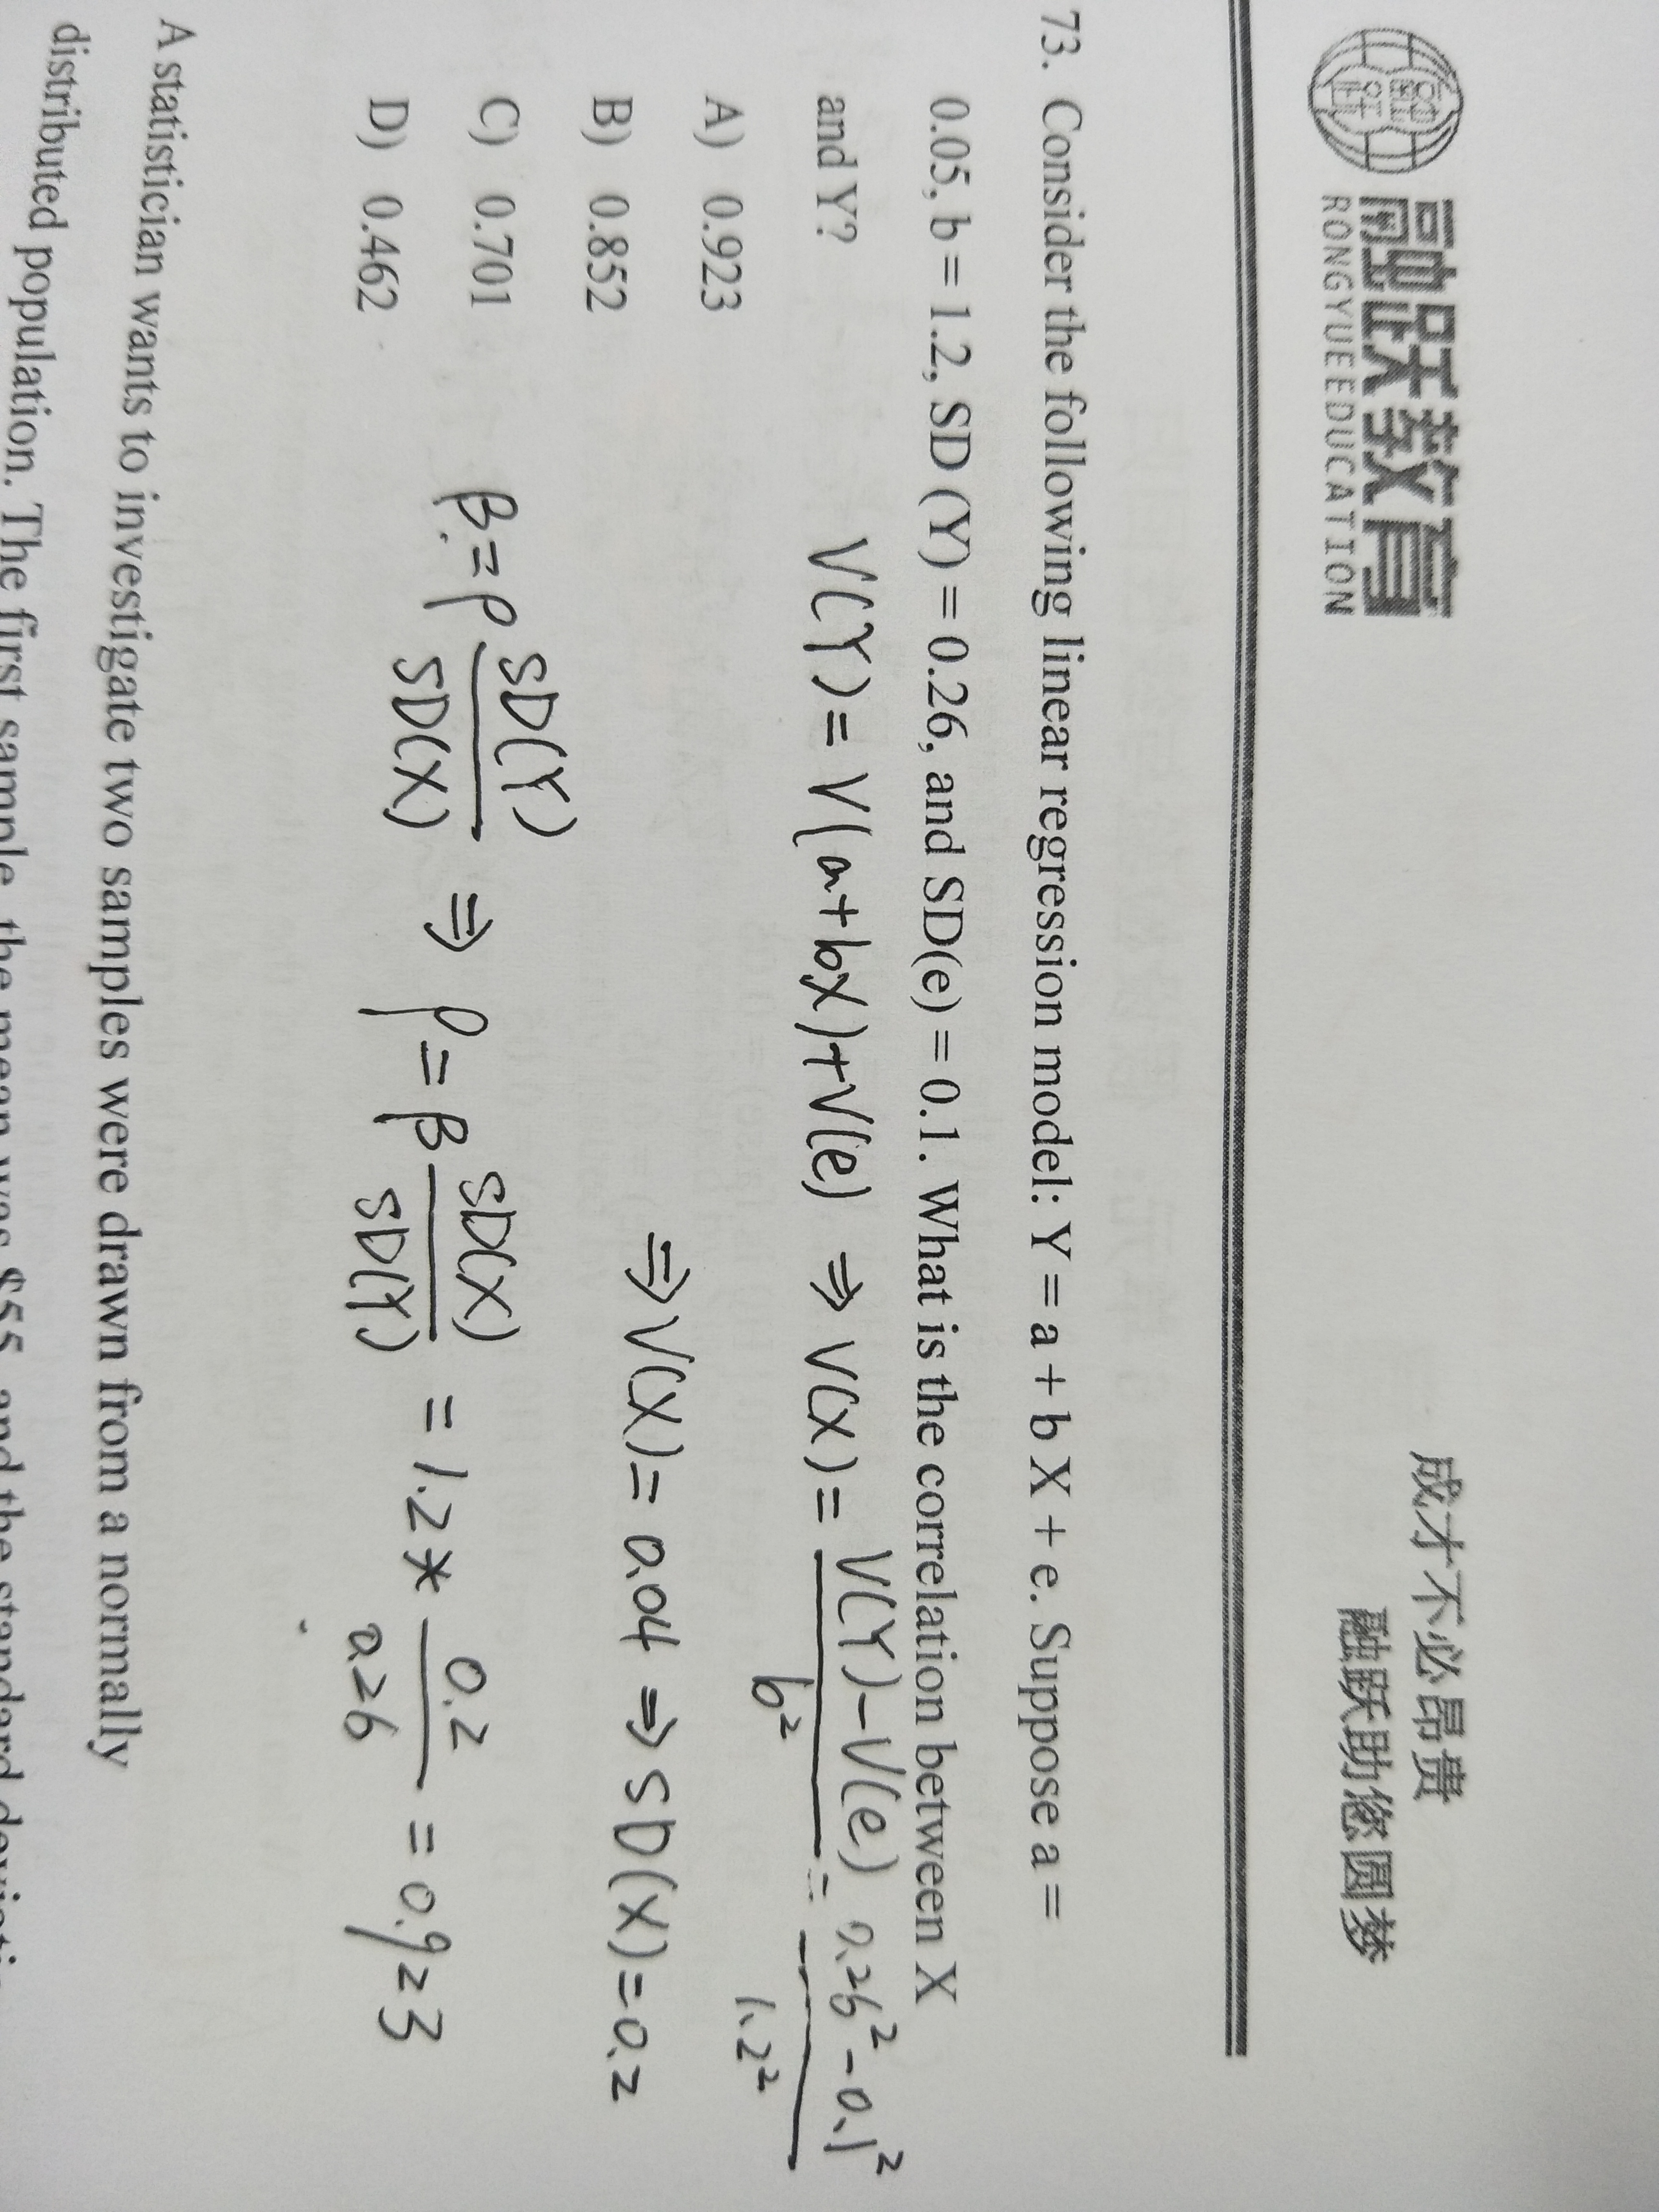 融跃教育
RONGYUEEDUCATION
成才不必昂贵
融跃助您圆梦
73. Consider the following linear regression model: Y = a + b X + e. Suppose a =
0.05, b = 1.2, SD (Y) = 0.26, and SD(e) = 0.1. What is the correlation between X
and Y?
V(Y) = V(a+bX)+V(e) ⇒ V(X) = V(Y)-V(e) / b² = 0.26²-0.1² / 1.2²
A) 0.923
⇒ V(X) = 0.04 ⇒ SD(X) = 0.2
B) 0.852
C) 0.701
β = ρ SD(Y) / SD(X) ⇒ ρ = β SD(X) / SD(Y) = 1.2 * 0.2 / 0.26 = 0.923
D) 0.462
A statistician wants to investigate two samples were drawn from a normally
distributed population. The first sample, the mean was $55 and the standard